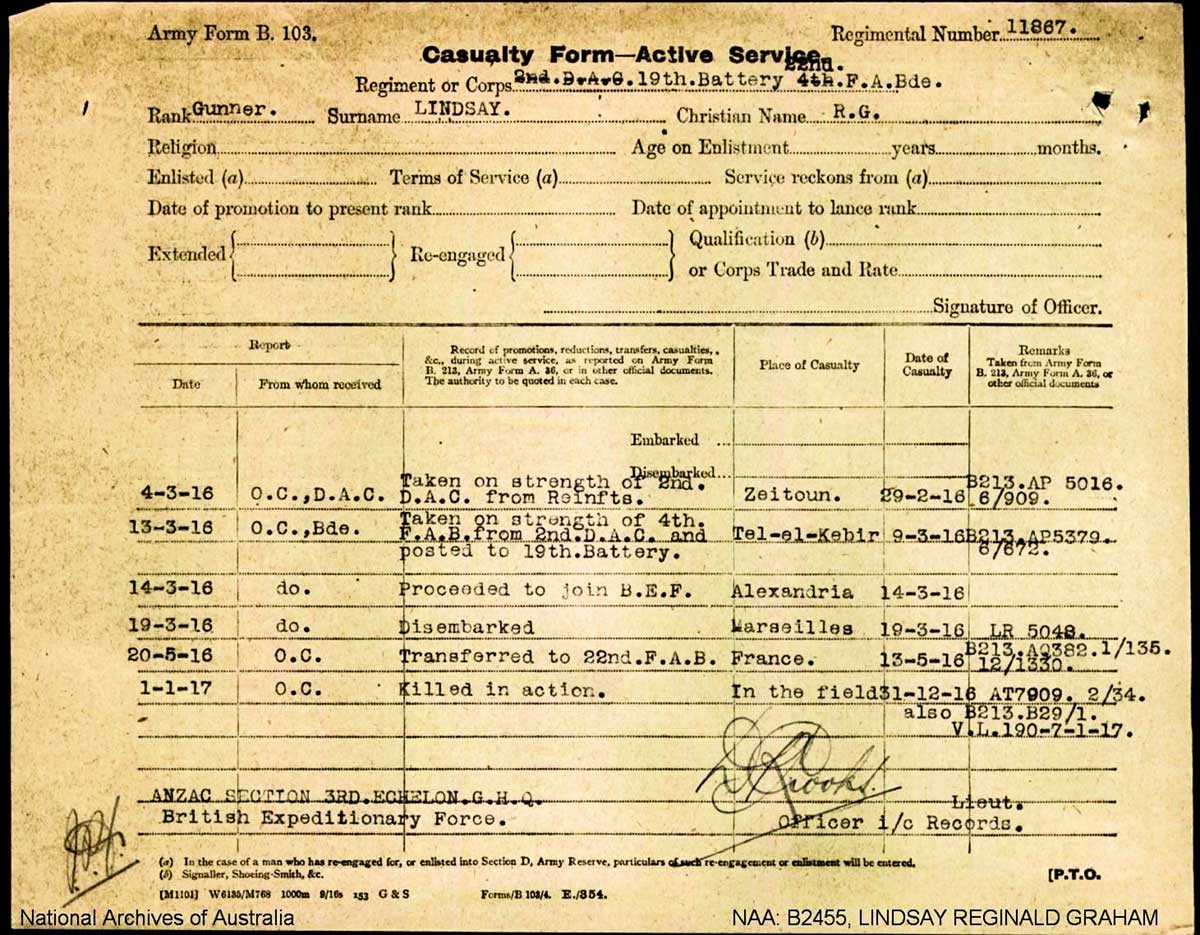 Army Form B. 103.
Regimental Number 11867.
Casualty Form—Active Service.
22nd.
Regiment or Corps 2nd.D.A.C. 19th.Battery 4th.F.A.Bde.
Rank Gunner. Surname LINDSAY. Christian Name R.G.
Religion Age on Enlistment years months.
Enlisted (a) Terms of Service (a) Service reckons from (a)
Date of promotion to present rank Date of appointment to lance rank
Extended { } Re-engaged { } Qualification (b)
or Corps Trade and Rate
Signature of Officer.
Report
Date
From whom received
Record of promotions, reductions, transfers, casualties,
&c., during active service, as reported on Army Form
B. 213, Army Form A. 36, or in other official documents.
The authority to be quoted in each case.
Place of Casualty
Date of
Casualty
Remarks
Taken from Army Form
B. 213, Army Form A. 36, or
other official documents
Embarked ...
Disembarked...
4-3-16 O.C.,D.A.C. Taken on strength of 2nd.
D.A.C. from Reinfts. Zeitoun. 29-2-16 B213.AP 5016.
6/909.
13-3-16 O.C.,Bde. Taken on strength of 4th.
F.A.B.from 2nd.D.A.C. and
posted to 19th.Battery. Tel-el-Kebir 9-3-16 B213.AP5379.
6/672.
14-3-16 do. Proceeded to join B.E.F. Alexandria 14-3-16
19-3-16 do. Disembarked Marseilles 19-3-16 LR 5048.
20-5-16 O.C. Transferred to 22nd.F.A.B. France. 13-5-16 B213.AQ382.1/135.
12/1330.
1-1-17 O.C. Killed in action. In the field 31-12-16 AT7909. 2/34.
also B213.B29/1.
V.L.190-7-1-17.
ANZAC SECTION 3RD.ECHELON.G.H.Q.
British Expeditionary Force.
Crooks.
Lieut.
Officer i/c Records.
(a) In the case of a man who has re-engaged for, or enlisted into Section D, Army Reserve, particulars of such re-engagement or enlistment will be entered.
(b) Signaller, Shoeing-Smith, &c.
[P.T.O.
[M1101] W6135/M768 1000m 9/16s 153 G & S Forms/B 103/4. E./354.
National Archives of Australia
NAA: B2455, LINDSAY REGINALD GRAHAM